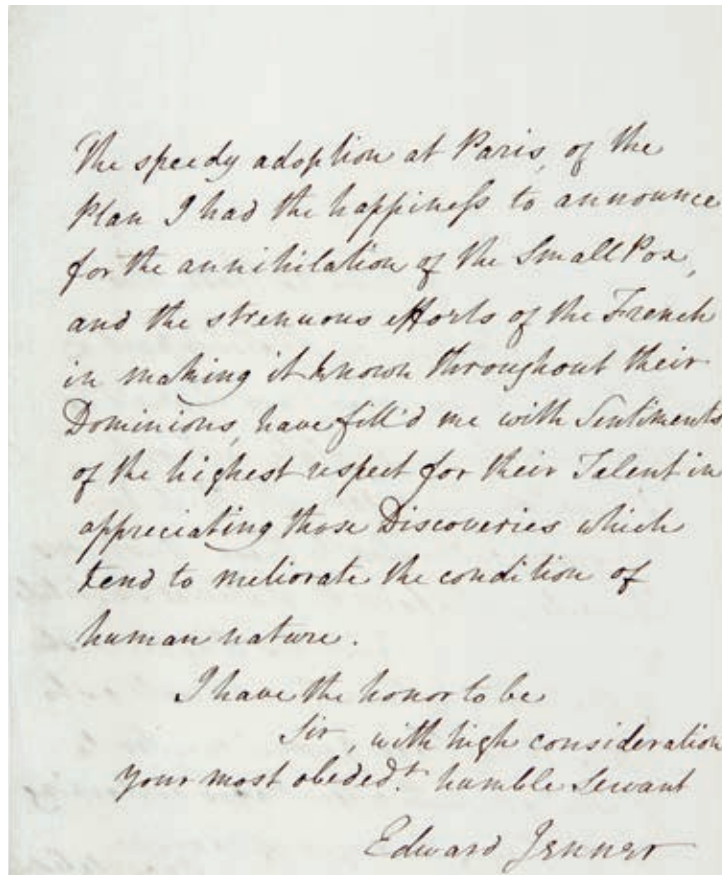 The speedy adoption at Paris, of the
Plan I had the happineſs to announce
for the annihilation of the Small Pox,
and the strenuous efforts of the French
in making it known throughout their
Dominions, have fill'd me with Sentiments
of the highest respect for their Talent in
appreciating those Discoveries which
tend to meliorate the condition of
human nature.
I have the honor to be
Sir, with high consideration
your most obeded.t humble Servant
Edward Jenner